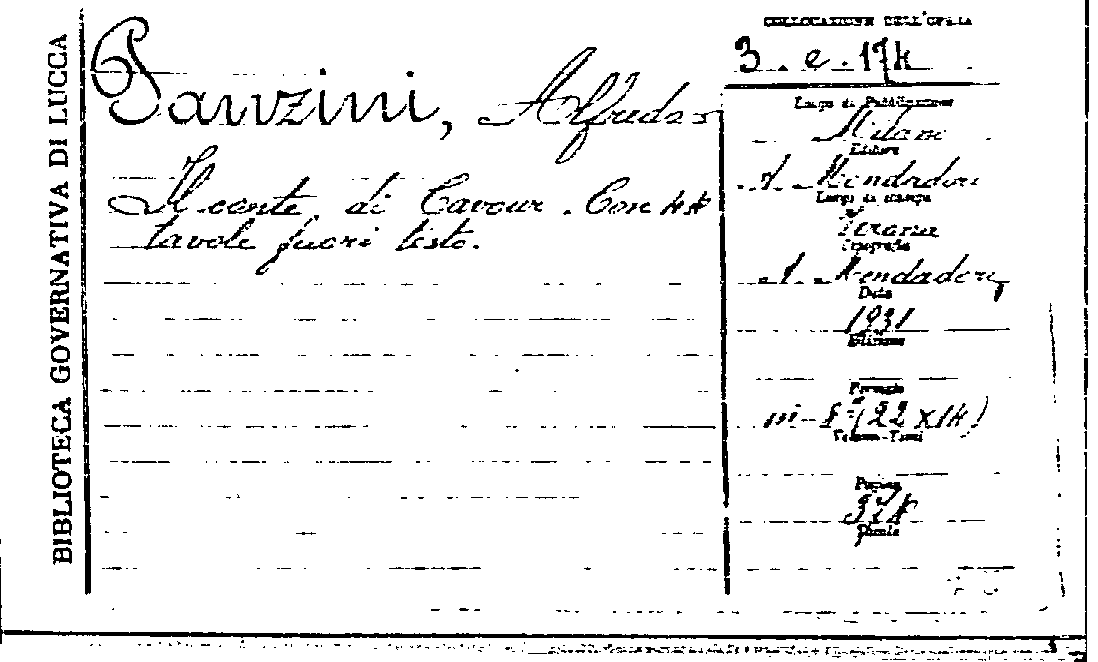 BIBLIOTECA GOVERNATIVA DI LUCCA
Panzini, Alfredo
Il conte di Cavour. Con 44
tavole fuori testo.
COLLOCAZIONE DELL'OPERA
3. e. 174
Luogo di Pubblicazione
Milano
Editore
A. Mondadori
Luogo di stampa
Verona
Tipografia
A. Mondadori
Data
1931
Edizione
Formato
in-8° (22 x 14)
Volume-Tomi
Pagine
374